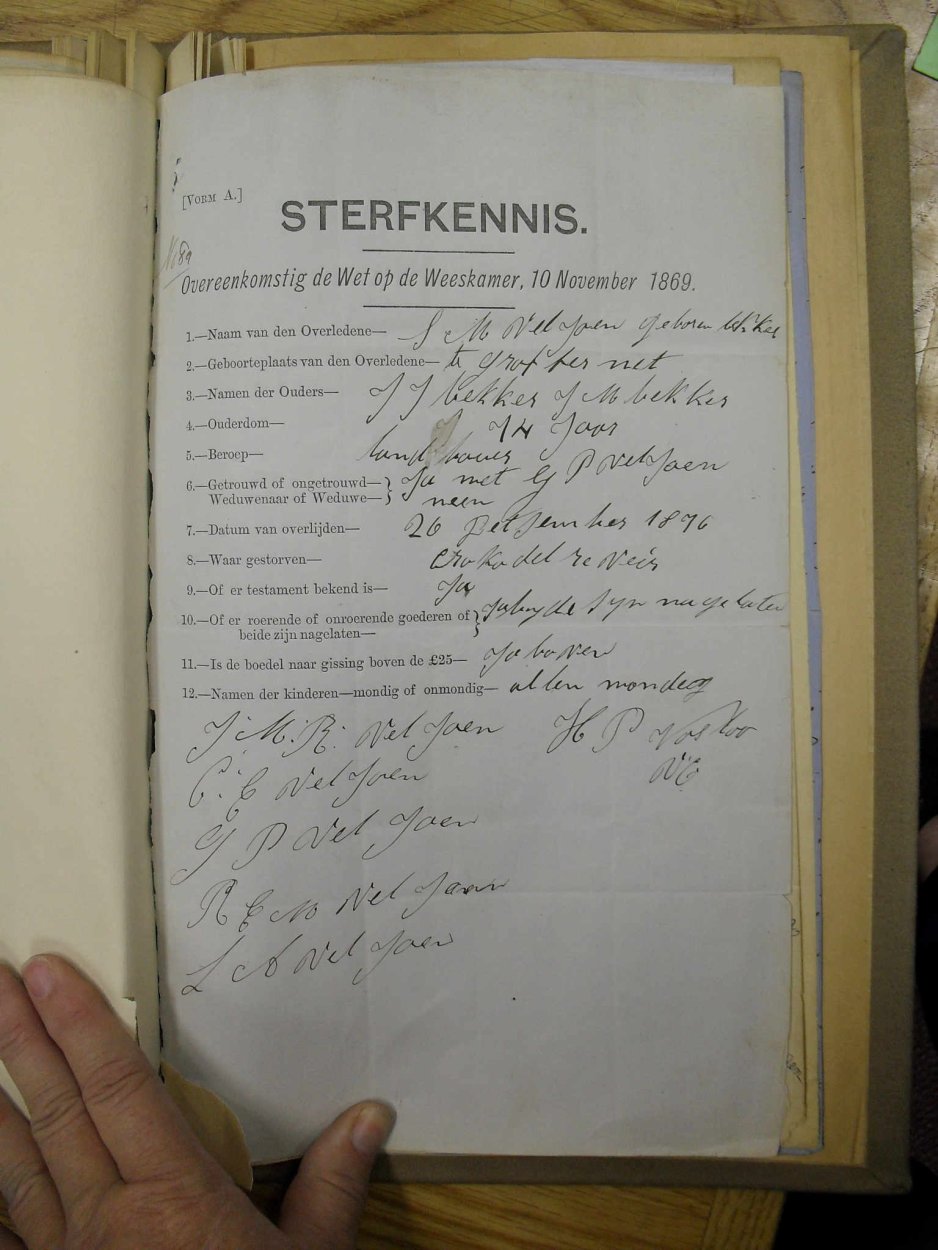 [VORM A.]
STERFKENNIS.
No 89
Overeenkomstig de Wet op de Weeskamer, 10 November 1869.
1.—Naam van den Overledene— S M Vel Joen geboren bekker
2.—Geboorteplaats van den Overledene— te
3.—Namen der Ouders— J J bekker J M bekker
4.—Ouderdom— 74 Jaar
5.—Beroep— land bouer
6.—Getrouwd of ongetrouwd— } Ja met G P Vel Joen
Weduwenaar of Weduwe— neen
7.—Datum van overlijden— 26 1896
8.—Waar gestorven— crokodel re Veir
9.—Of er testament bekend is— Ja
10.—Of er roerende of onroerende goederen of } Ja beyde Syn na gelaten
beide zijn nagelaten—
11.—Is de boedel naar gissing boven de £25— Ja boven
12.—Namen der kinderen—mondig of onmondig— allen mondeg
J. M. R. Vel Joen H P Vosloo
C. E Vel Joen VC
G P Vel Joen
R E M Vel Joen
L A Vel Joen